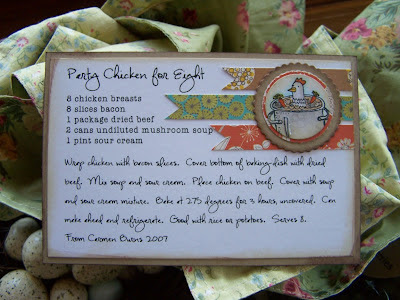 Party Chicken for Eight
8 chicken breasts
8 slices bacon
1 package dried beef
2 cans undiluted mushroom soup
1 pint sour cream
Wrap chicken with bacon slices. Cover bottom of baking-dish with dried
beef. Mix soup and sour cream. Place chicken on beef. Cover with soup
and sour cream mixture. Bake at 275 degrees for 3 hours, uncovered. Can
make ahead and refrigerate. Good with rice or potatoes. Serves 8.
From Carmen Burns 2007